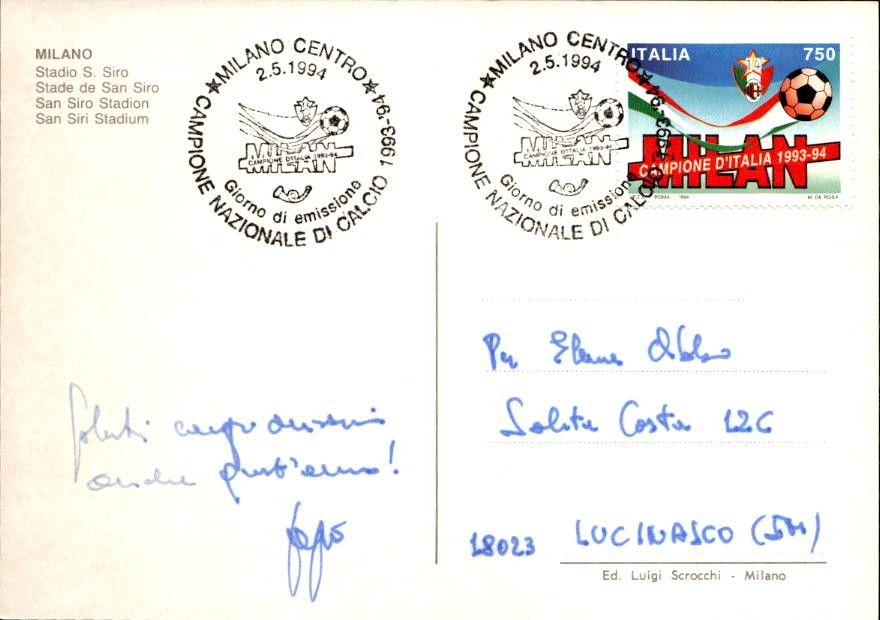 MILANO
Stadio S. Siro
Stade de San Siro
San Siro Stadion
San Siri Stadium
★ MILANO CENTRO ★
2.5.1994
MILAN
CAMPIONE D'ITALIA 1993-94
Giorno di emissione
CAMPIONE NAZIONALE DI CALCIO 1993-94
★ MILANO CENTRO ★
2.5.1994
MILAN
CAMPIONE D'ITALIA 1993-94
Giorno di emissione
CAMPIONE NAZIONALE DI CALCIO 1993-94
ITALIA 750
14
MILAN
CAMPIONE D'ITALIA 1993-94
I.P.Z.S. ROMA 1994 M. DE ROSA
Saluti
anche quest'anno!
Elena
Salita Costa 126
18023 LUCINASCO (IM)
Ed. Luigi Scrocchi - Milano